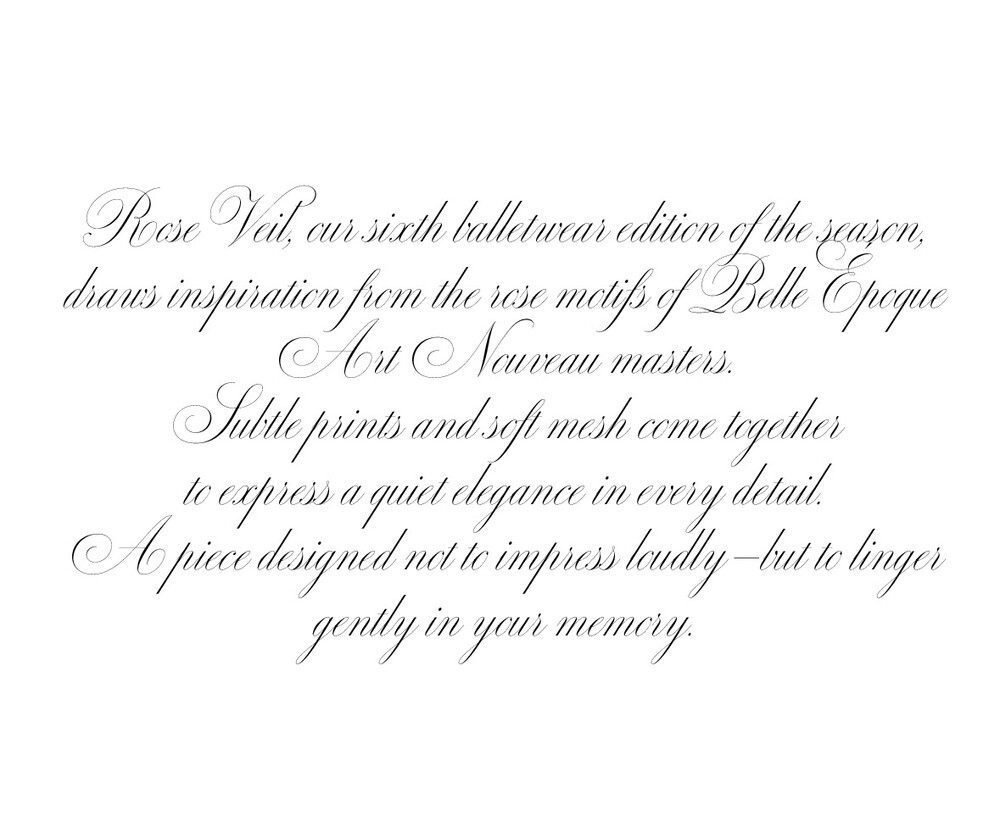 Rose Veil, our sixth balletwear edition of the season,
draws inspiration from the rose motifs of Belle Époque
Art Nouveau masters.
Subtle prints and soft mesh come together
to express a quiet elegance in every detail.
A piece designed not to impress loudly—but to linger
gently in your memory.